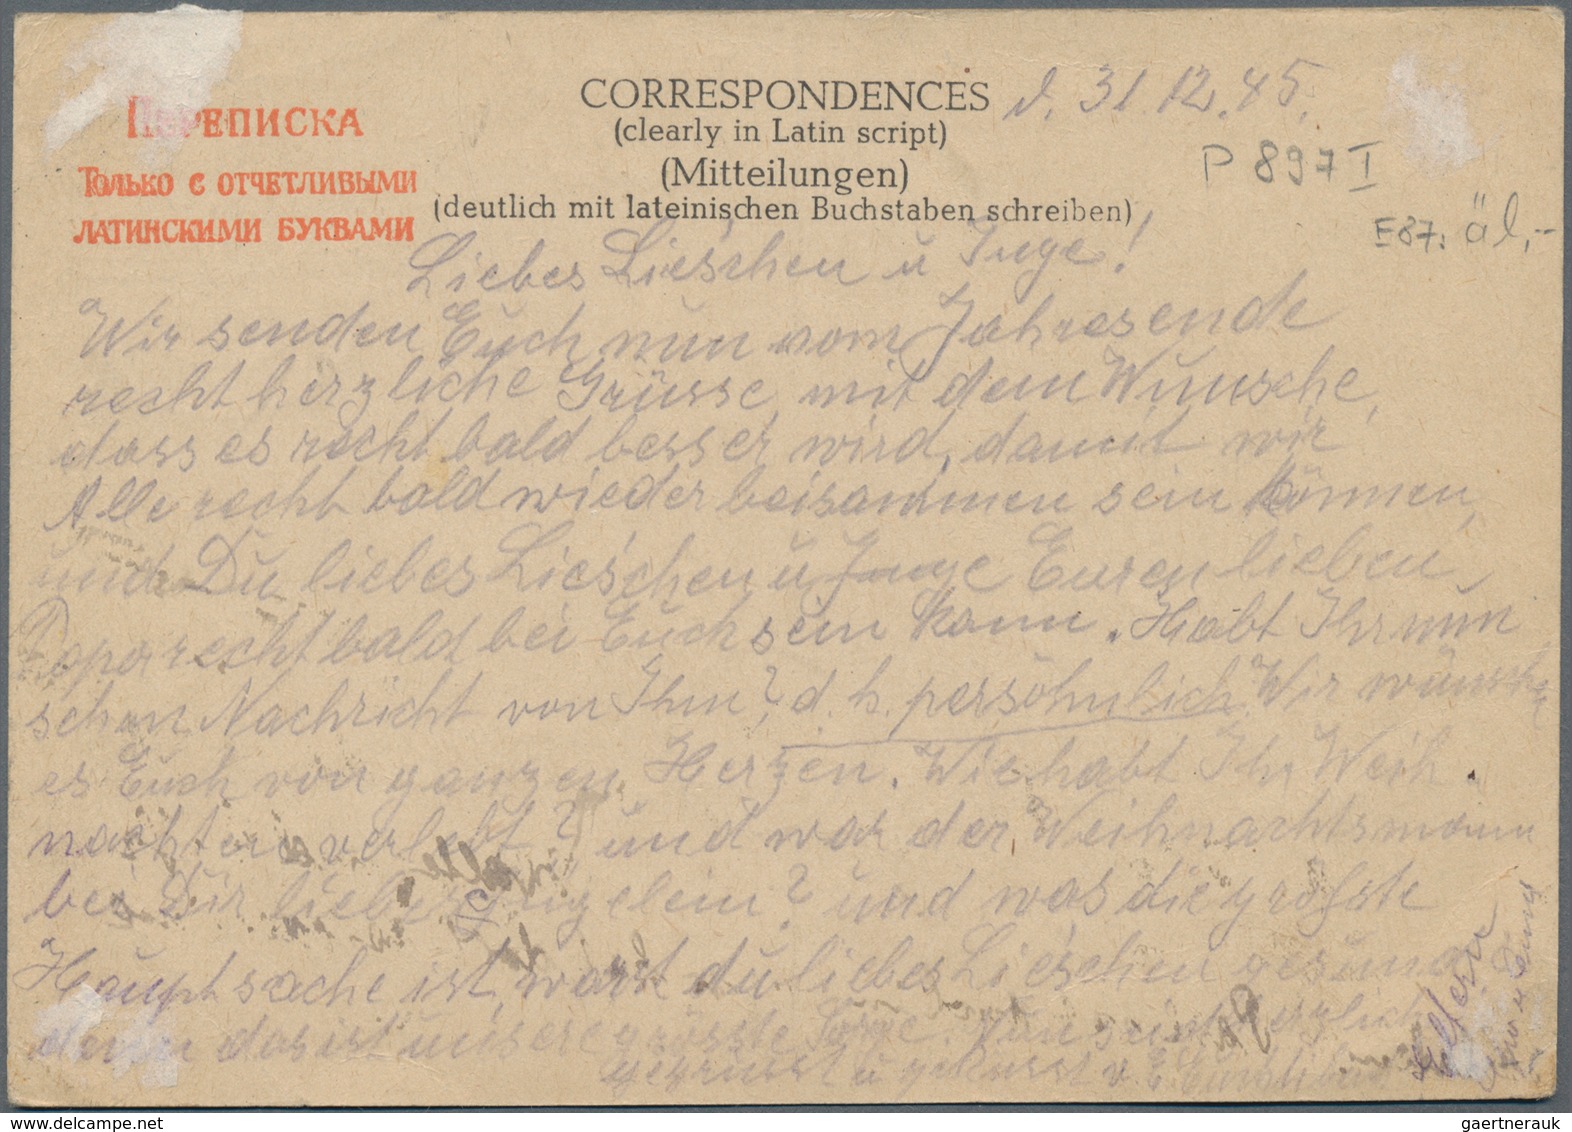 ПЕРЕПИСКА
Только с отчетливыми
латинскими буквами
CORRESPONDENCES
(clearly in Latin script)
(Mitteilungen)
(deutlich mit lateinischen Buchstaben schreiben)
d. 31.12.45.
P 897 I
E87. äl,--
Liebes Lieschen u Inge!
Wir senden Euch nun vom Jahresende
recht herzliche Grüsse, mit dem Wunsche,
dass es recht bald besser wird, damit wir
Alle recht bald wieder beisammen sein können,
und Du liebes Lieschen u Inge Euren lieben
Papa recht bald bei Euch sein kann. Habt Ihr nun
schon Nachricht von Ihm?, d. h. persöhnlich Wir wünschen
es Euch von ganzen Herzen. Wie habt Ihr Weih
nachten verlebt? und war der Weihnachtsmann
bei Dir liebes Ingelein? und was die größste
Hauptsache ist, warst du liebes Lieschen gesund
denn das ist unsere grösste Sorge. Nun seit herzlich
gegrüsst u geküsst v. E. Euch lieb
Eltern
Opa u
gaertnerauk